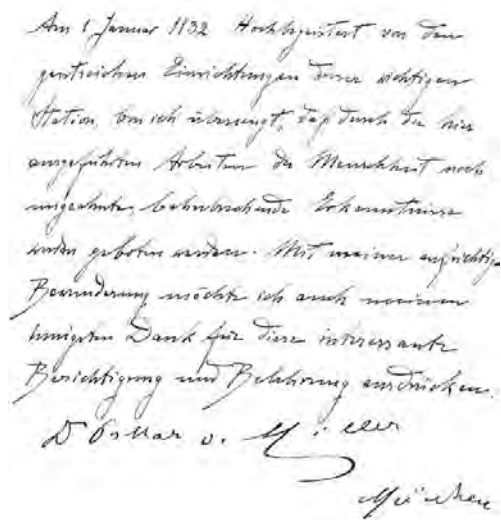 Am 1 Januar 1932 Hochbegeistert von den
geistreichen Einrichtungen dieser wichtigen
Station, bin ich überzeugt, daß durch die hier
ausgeführten Arbeiten der Menschheit noch
ungeahnte, bahnbrechende Erkenntnisse
werden geboten werden. Mit meiner aufrichtigen
Bewunderung möchte ich auch meinen
innigsten Dank für diese interessante
Besichtigung und Belehrung ausdrücken.
Dr Oskar v. Miller
München